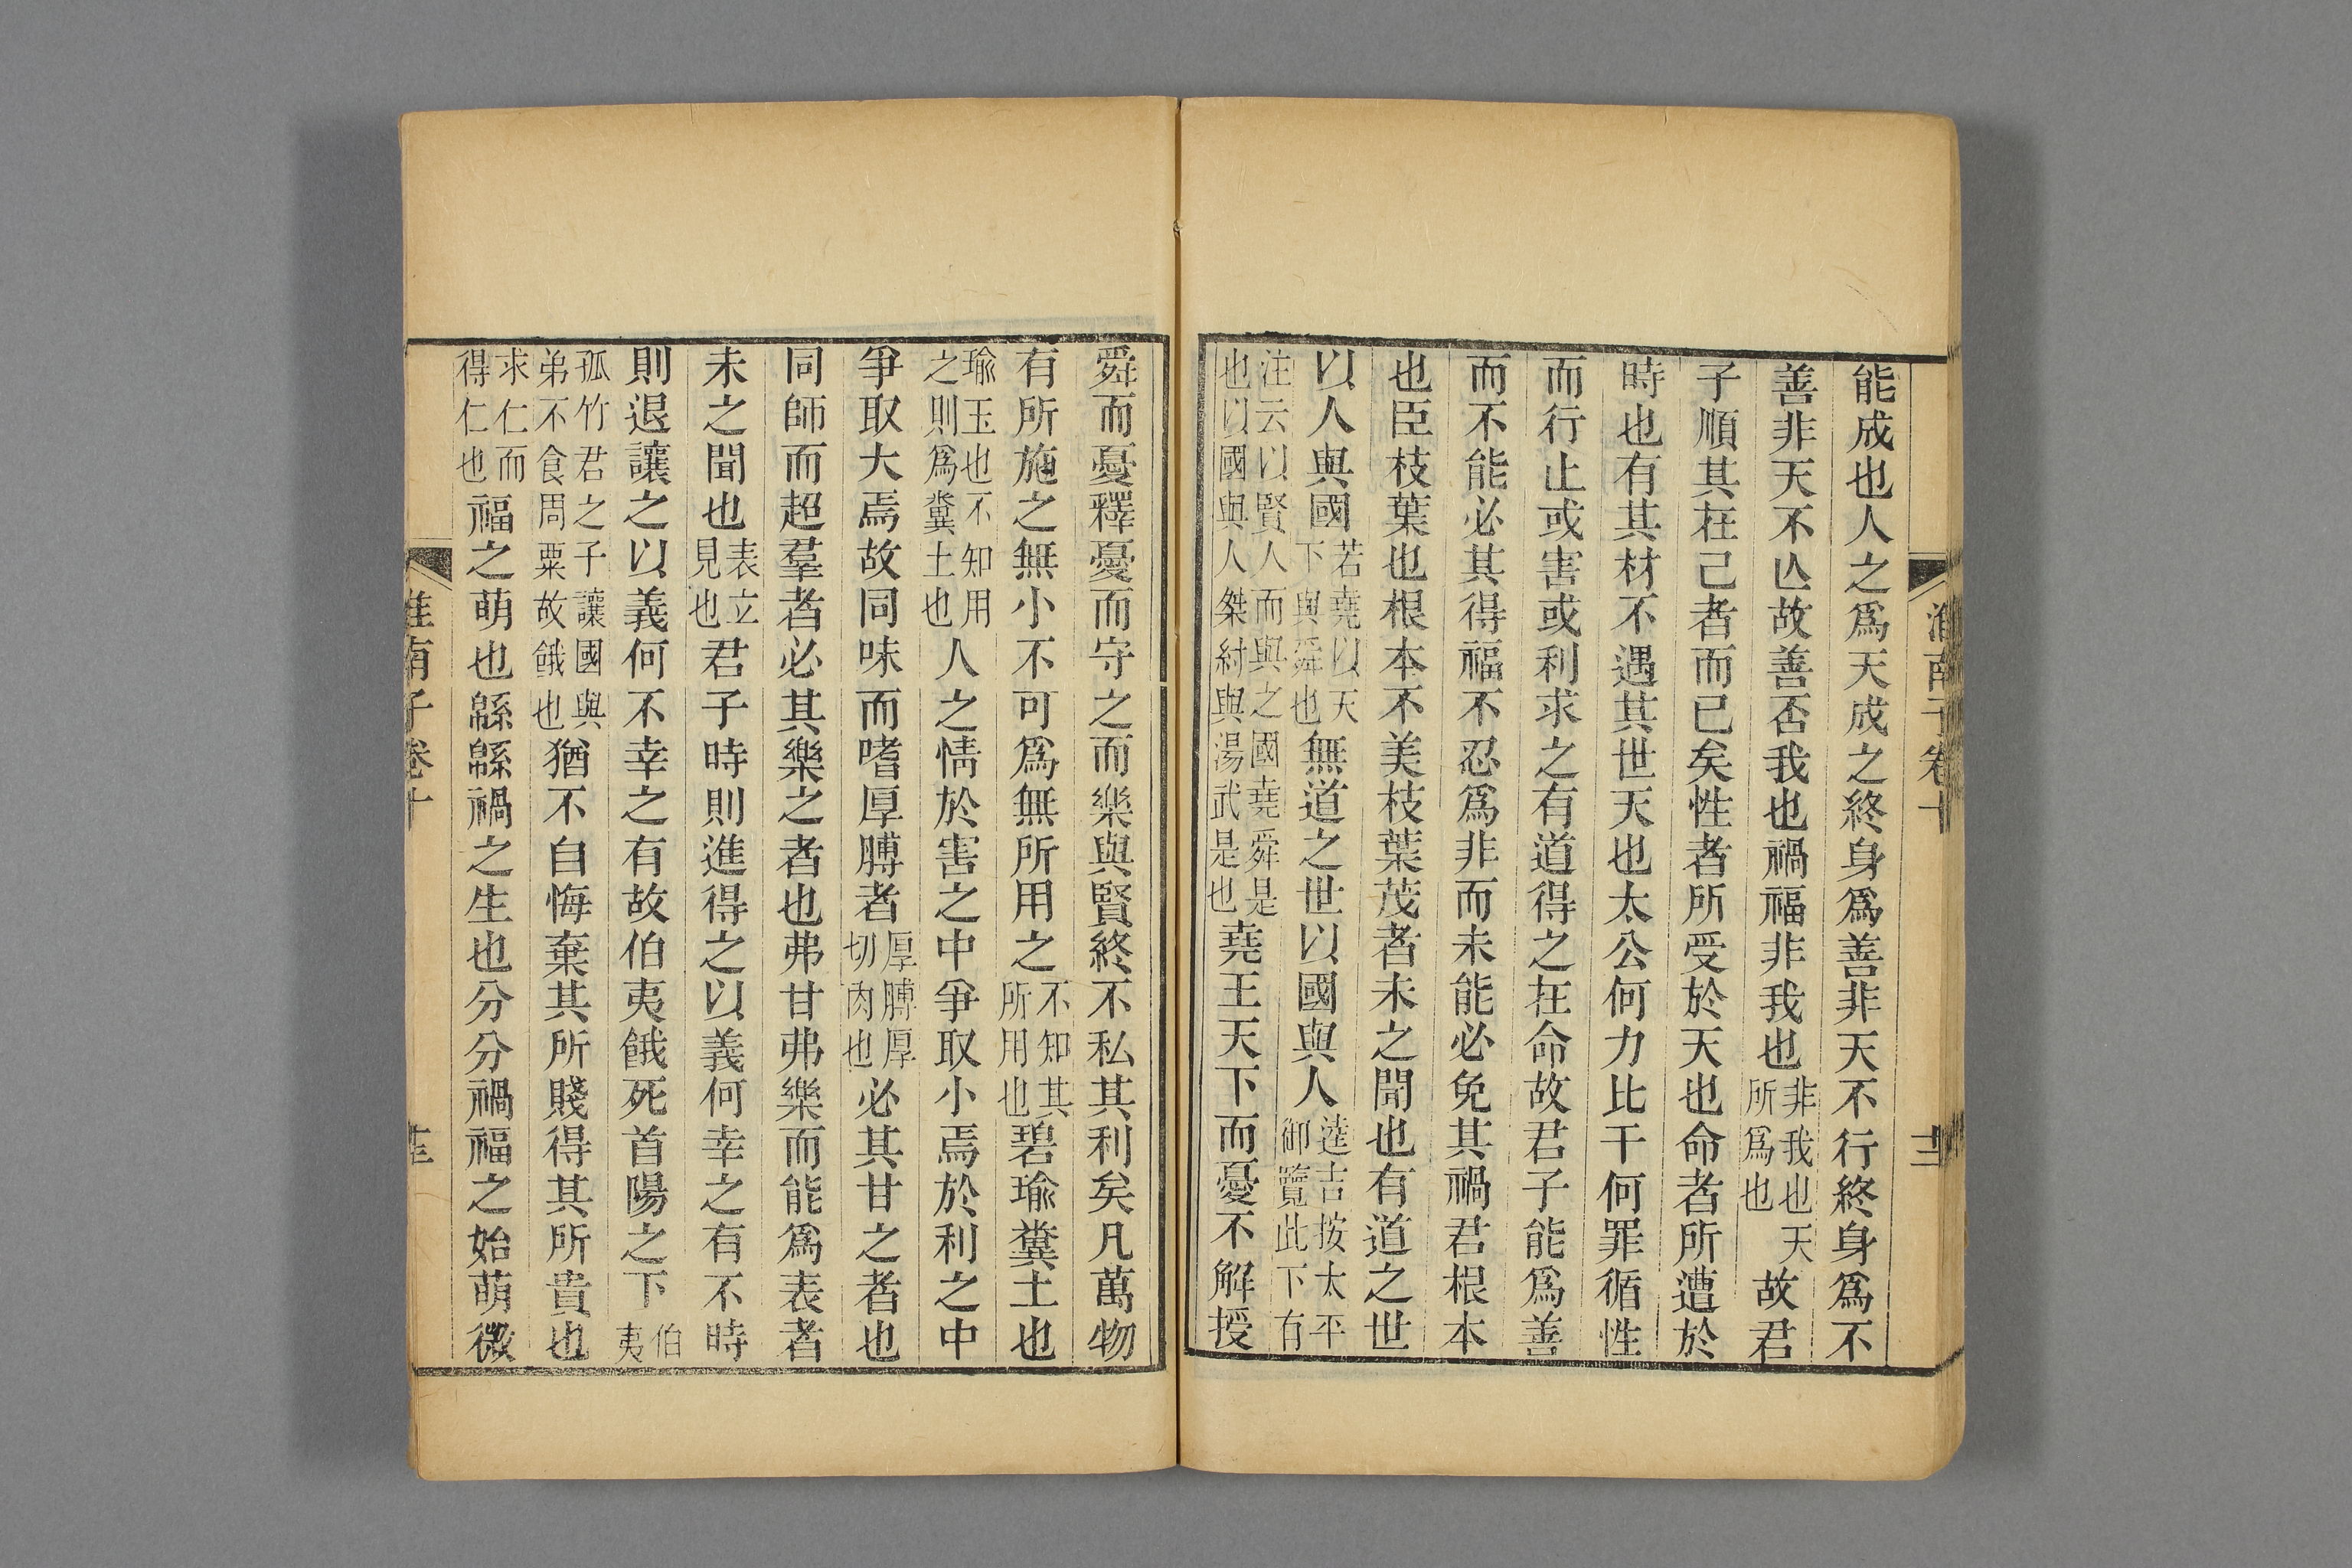 淮南子卷十
十二
能成也人之爲天成之終身爲善非天不行終身爲不
善非天不亾故善否我也禍福非我也非我也天所爲也故君
子順其在己者而已矣性者所受於天也命者所遭於
時也有其材不遇其世天也太公何力比干何罪循性
而行止或害或利求之有道得之在命故君子能爲善
而不能必其得福不忍爲非而未能必免其禍君根本
也臣枝葉也根本不美枝葉茂者未之聞也有道之世
以人與國若堯以天下與舜也無道之世以國與人逵吉按太平御覽此下有
注云以賢人而與之國堯舜是也以國與人桀紂與湯武是也堯王天下而憂不解授
舜而憂釋憂而守之而樂與賢終不私其利矣凡萬物
有所施之無小不可爲無所用之不知其所用也碧瑜糞土也
瑜玉也不知用之則爲糞土也人之情於害之中爭取小焉於利之中
爭取大焉故同味而嗜厚膊者厚膊厚切肉也必其甘之者也
同師而超羣者必其樂之者也弗甘弗樂而能爲表者
未之聞也表立見也君子時則進得之以義何幸之有不時
則退讓之以義何不幸之有故伯夷餓死首陽之下伯夷
孤竹君之子讓國與弟不食周粟故餓也猶不自悔棄其所賤得其所貴也
求仁而得仁也福之萌也緜緜禍之生也分分禍福之始萌微
淮南子卷十